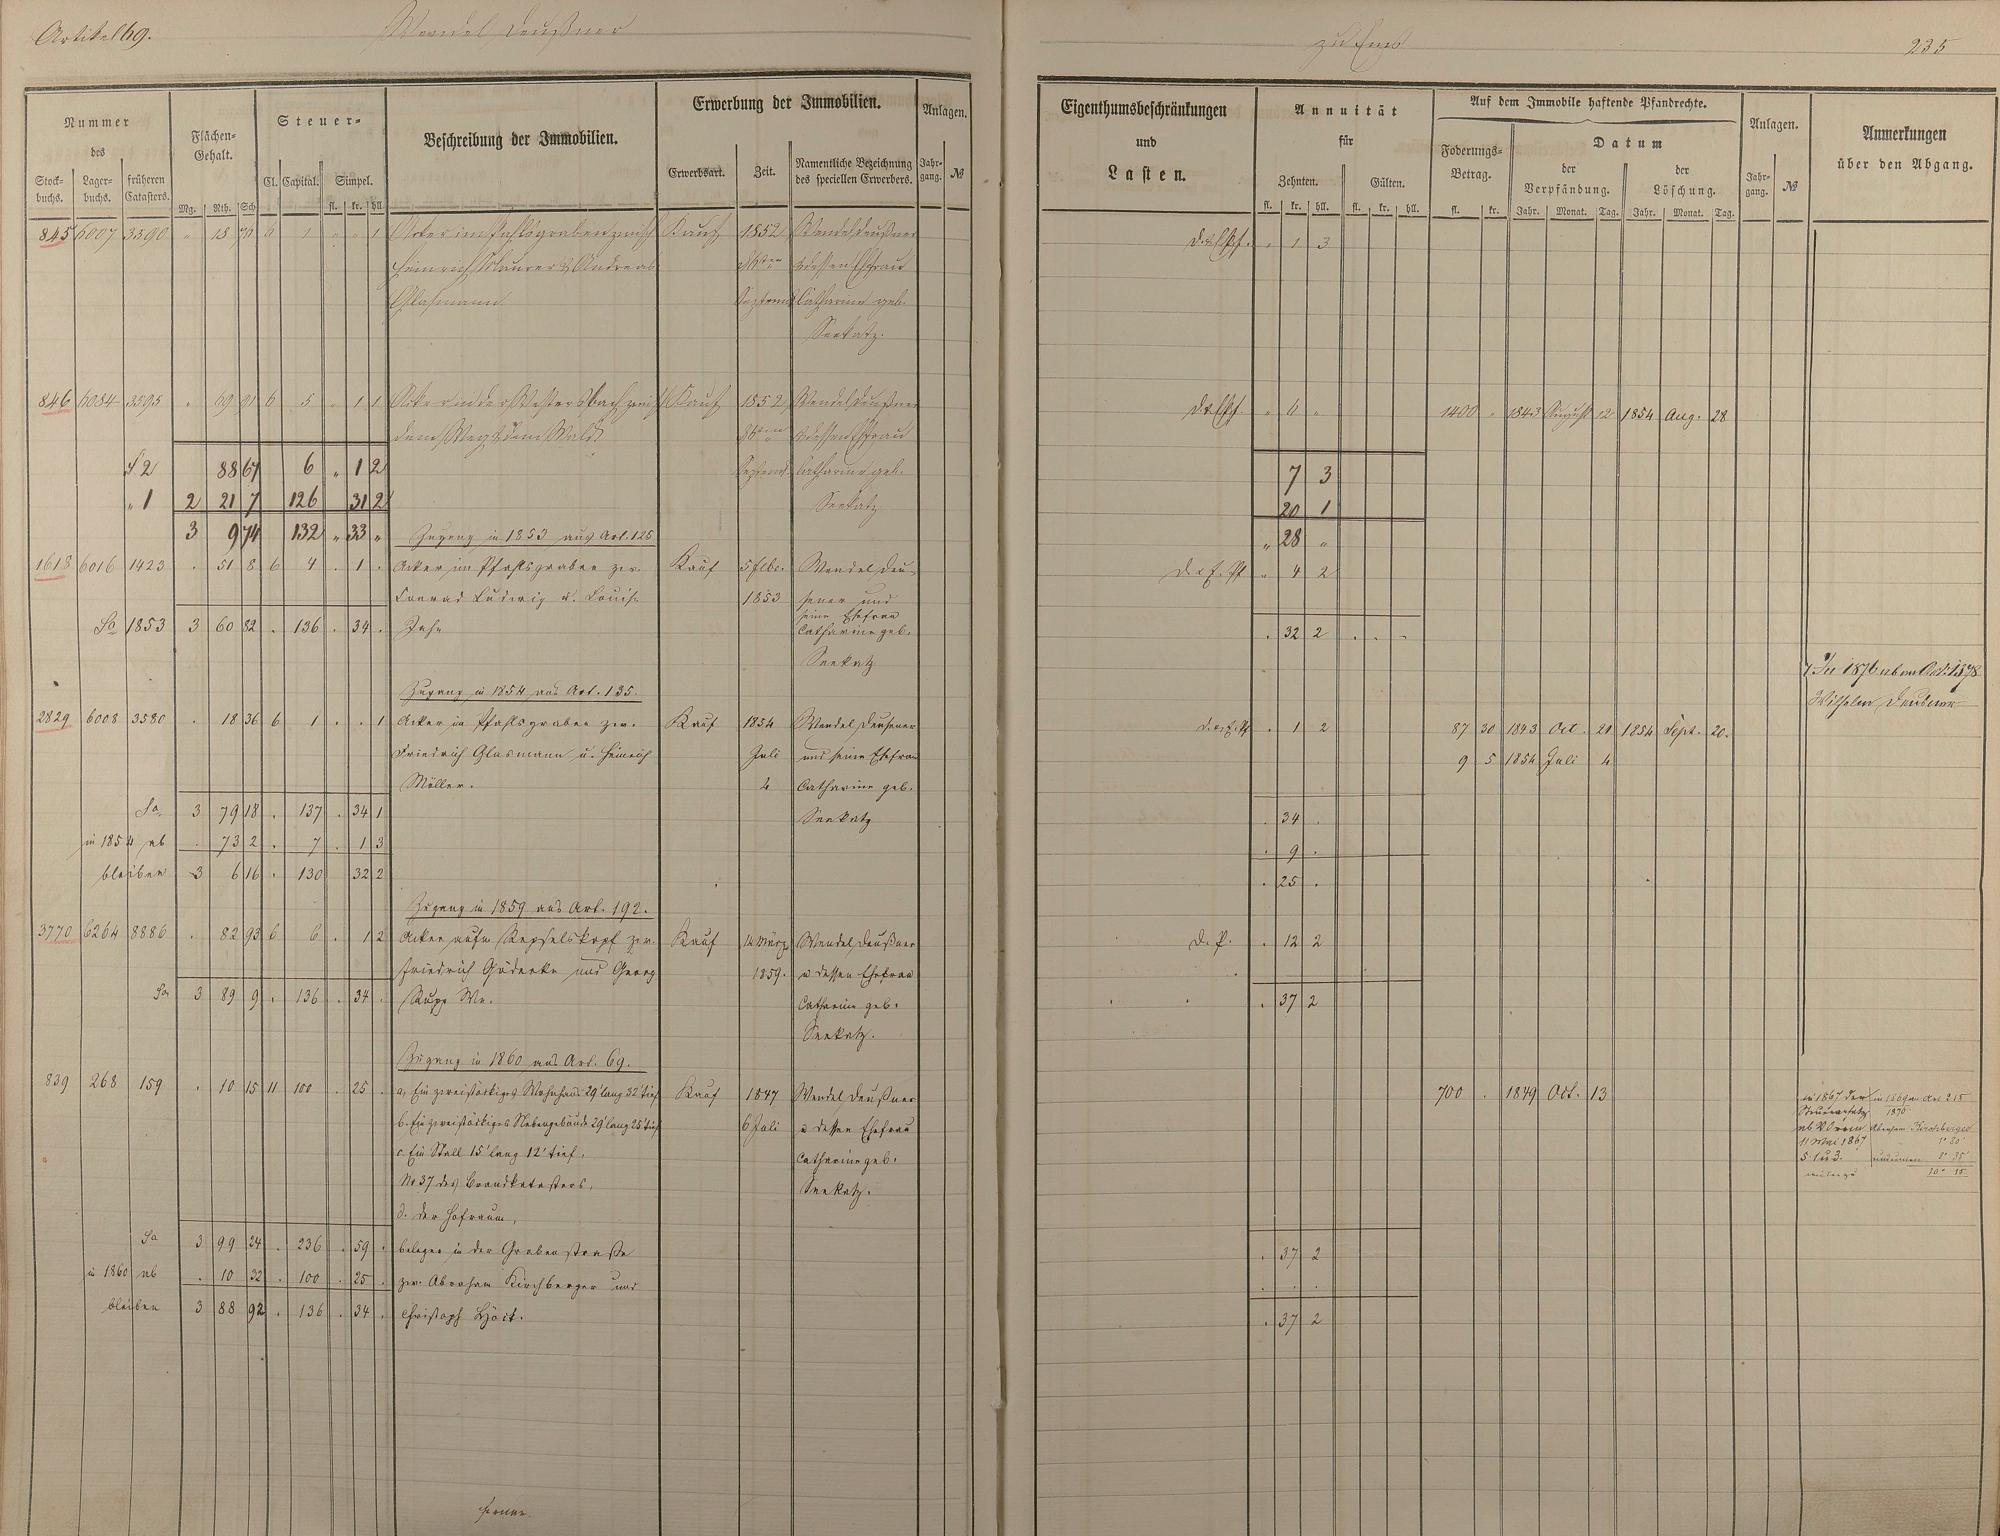 Artikel 69.
Wendel Deußner
zu Ems
235
Nummer
des
Stock-
buchs.
Lager-
buchs.
früheren
Catasters.
Flächen-
Gehalt.
Mg. Rth. Sch
Steuer-
Cl. Capital. Simpel.
fl. kr. hll
Beschreibung der Immobilien.
Erwerbung der Immobilien.
Erwerbsart. Zeit.
Namentliche Bezeichnung
des speciellen Erwerbers.
Anlagen.
Jahr-
gang. №
Eigenthumsbeschränkungen
und
Lasten.
Annuität
für
Zehnten. Gülten.
fl. kr. hll. fl. kr. hll.
Auf dem Immobile haftende Pfandrechte.
Foderungs-
Betrag.
fl. kr.
Datum
der
Verpfändung.
der
Löschung.
Jahr. Monat. Tag. Jahr. Monat. Tag.
Anlagen.
Jahr-
gang. №
Anmerkungen
über den Abgang.
845 6007 3390 " 18 76 6 1 " " 1 Acker im Pfahlsgraben zwisch Kauf 1852 Wendel Deußner " 1 3
Heinrich Maurer & Andreas & dessen Ehfrau
Glasmann Septemb Catharine geb.
Seekatz.
846 6084 3595 . 69 91 6 5 " 1 1 Acker in der Westersbach zwisch Kauf 1852 Wendel Deußner " 6 " 1400 " 1843 August 12 1854 Aug. 28
dem Weg & dem Wald & dessen Ehfrau
S 2 88 67 6 " 1 2 Septemb Catharine geb. 7 3
" 1 2 21 7 126 31 2 Seekatz 20 1
3 9 74 132 " 33 " Zugang in 1853 aus Art. 125 " 28 "
1618 6016 1423 . 51 8 6 4 . 1 . Acker im Pfahlsgraben zw. Kauf 5 Wendel Deu- " 4 2
Conrad Ludwig u. Louis 1853 sener und
seine Ehefrau
Sa 1853 3 60 82 . 136 . 34 . Jahn Catharine geb. . 32 2
Seekatz
Zugang in 1854 aus Art. 135.
1876
Wilhelm Deusner
2829 6008 3580 . 18 36 6 1 . . 1 Acker im Pfahlsgraben zw. Kauf 1854 Wendel Deusener . 1 2 87 30 1843 Oct. 21 1854 Sept. 20.
Friedrich Glasmann u. Heinrich Juli und seine Ehefrau 9 5 1854 Juli 4
Müller. 4 Catharine geb.
Sa. 3 79 18 . 137 . 34 1 Seekatz . 34 .
in 1854 ab . 73 2 . 7 . 1 3 . 9 .
bleiben 3 6 16 . 130 32 2 . 25 .
Zugang in 1859 aus Art. 192.
3770 6264 8886 . 82 93 6 6 . 1 2 Acker aufm Kepselskopf zw. Kauf 14 März Wendel Deußner d. P. . 12 2
Friedrich Gödecke und Georg 1859. u dessen Ehefrau
Sa 3 89 9 . 136 . 34 . Rupp We. Catharine geb. . 37 2
Seekatz.
Zugang in 1860 aus Art. 69.
839 268 159 . 10 15 11 100 . 25 . a, Ein zweistöckiges Wohnhaus 29' lang 32' tief Kauf 1847 Wendel Deußner 700 . 1849 Oct. 13
b. Ein zweistöckiges Nebengebäude 29' lang 25' tief 6 Juli u dessen Ehefrau
c Ein Stall 15' lang 12' tief, Catharine geb.
No 37 des Brandkatasters, Seekatz.
d. der Hofraum,
in 1867 der
11 Mai 1867
in 1869 Art 215
1870
Abraham Kirchberger
Sa 3 99 24 . 236 . 59 . belegen in der Grabenstraße . 37 2
in 1860 ab . 10 32 . 100 . 25 . zw. Abraham Kirchberger und . . .
bleiben 3 88 92 . 136 . 34 . Christoph Höst. . 37 2